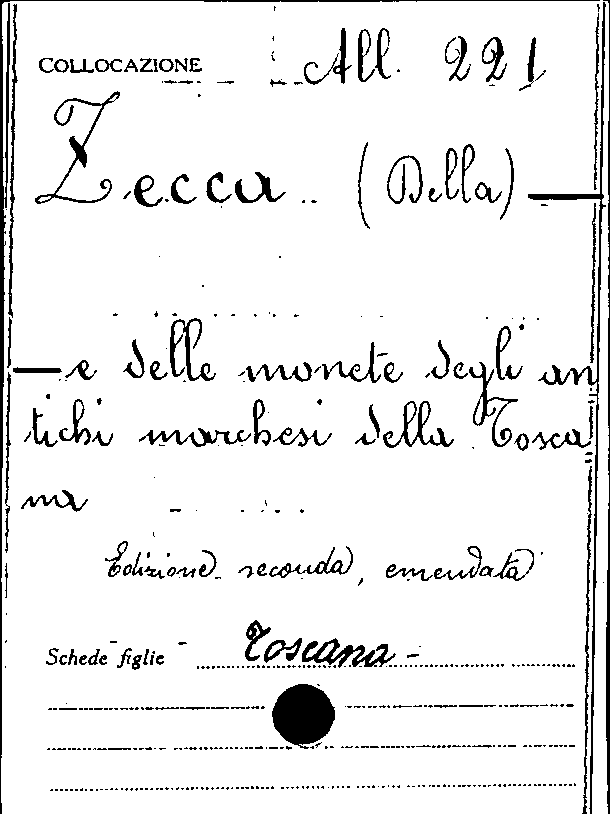 COLLOCAZIONE All. 221
Zecca .. (Della) —
— e delle monete degli an
tichi marchesi della Tosca
na
Edizione seconda, emendata
Schede figlie Toscana -